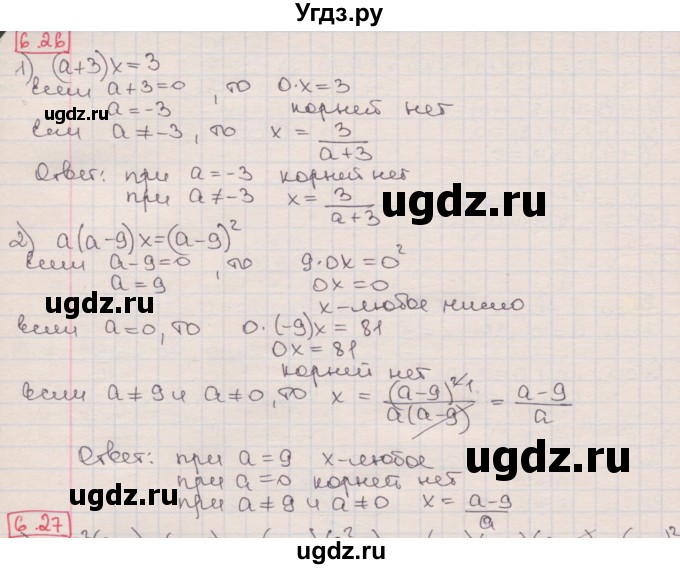 Угдз.ру
6.26
1) (a+3)x=3
если a+3=0, то 0·x=3
a=-3 корней нет
если a≠-3, то x = 3/(a+3)
Ответ: при a=-3 корней нет
при a≠-3 x = 3/(a+3)
2) a(a-9)x=(a-9)²
если a-9=0, то 9·0x=0²
a=9 0x=0
x-любое число
если a=0, то 0·(-9)x=81
0x=81
корней нет
если a≠9 и a≠0, то x = (a-9)²/¹/(a(a-9)) = (a-9)/a
Ответ: при a=9 x-любое
при a=0 корней нет
при a≠9 и a≠0 x = (a-9)/a
6.27
ugdz.ru
ugdz.ru
ugdz.ru
ugdz.ru
ugdz.ru
ugdz.ru
ugdz.ru
ugdz.ru
ugdz.ru